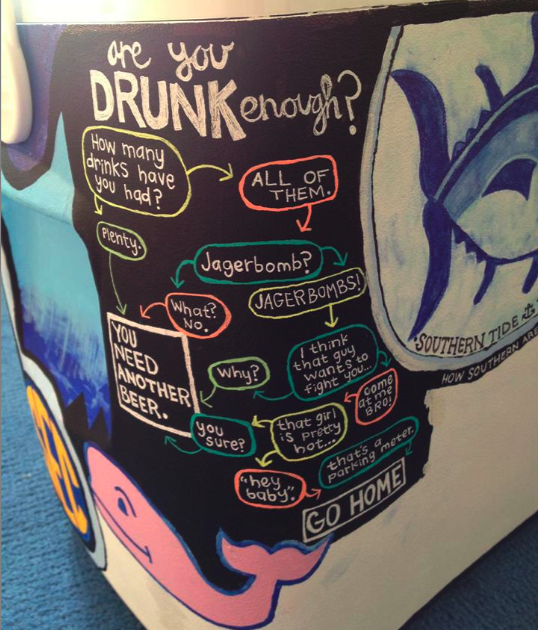 are you
DRUNK enough?
How many
drinks have
you had?
ALL OF
THEM.
Plenty.
Jagerbomb?
JAGERBOMBS!
What?
No.
YOU
NEED
ANOTHER
BEER.
I think
that guy
wants to
fight you...
Why?
come
at me
BRO!
that girl
is pretty
hot...
you
sure?
that's a
parking meter.
"hey
baby".
GO HOME
SOUTHERN TIDE
HOW SOUTHERN ARE